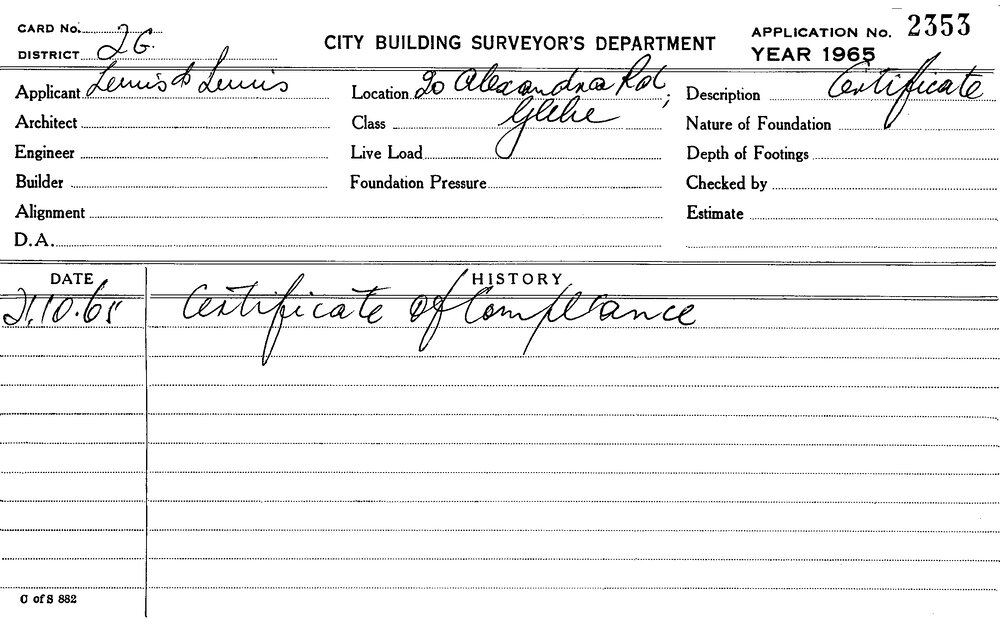 CARD No.
DISTRICT 2G.
CITY BUILDING SURVEYOR'S DEPARTMENT
APPLICATION No. 2353
YEAR 1965
Applicant Lewis & Lewis
Location 20 Alexandra Rd,
Description Certificate
Architect
Class Glebe
Nature of Foundation
Engineer
Live Load
Depth of Footings
Builder
Foundation Pressure
Checked by
Alignment
Estimate
D.A.
DATE
HISTORY
21.10.65 Certificate of Compliance
C of S 882